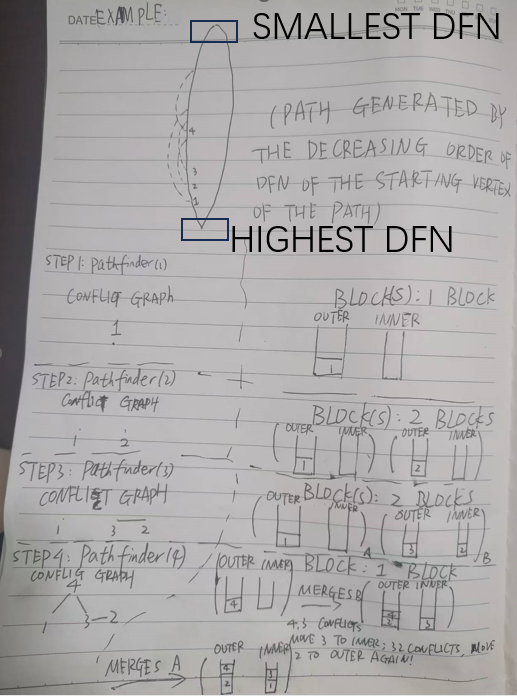 DATE EXAMPLE:
SMALLEST DFN
MON TUE WED THU
4
3
2
1
(PATH GENERATED BY
THE DECREASING ORDER OF
DFN OF THE STARTING VERTEX
OF THE PATH)
HIGHEST DFN
STEP1: Pathfinder(1)
CONFLICT GRAPH
1
BLOCK(S): 1 BLOCK
OUTER INNER
1
STEP2: Pathfinder(2)
Conflict GRAPH
1 2
BLOCK(S): 2 BLOCKS
OUTER INNER OUTER INNER
1 2
STEP3: Pathfinder(3)
CONFLICT GRAPH
1 3 2
BLOCK(S): 2 BLOCKS
OUTER INNER OUTER INNER
1 A 3 2 B
STEP4: Pathfinder(4)
CONFLIG GRAPH
4
1 3-2
BLOCK: 1 BLOCK
OUTER INNER
4
MERGES B
OUTER INNER
4
2 3
4,3 CONFLICTS
MOVE 3 TO INNER; 32 CONFLICTS, MOVE
2 TO OUTER AGAIN!
MERGES A
OUTER INNER
4 3
2 1